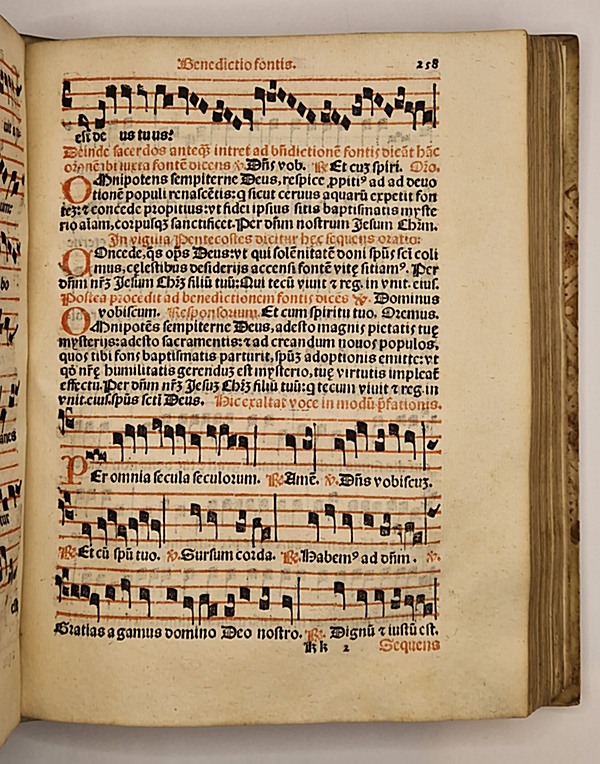 Benedictio fontis. 258
est de us tuus?
Deinde sacerdos anteq̃ intret ad bñdictionẽ fontis dicat hãc
orõnẽ ibi iuxta fontẽ dicens ℣. Dñs vob. ℟. Et cuȝ spiri. Oro.
OMnipotens sempiterne Deus, respice ꝓpitiꝰ ad ad deuo
tionẽ populi renascẽtis: q̃ sicut ceruus aquarũ expetit fon
tez: ⁊ concede propitius: vt fidei ipsius sitis baptismatis myste
rio aĩam, corpusq̃ sanctificet. Per dñm nostrum Jesum Chr̃m.
In vigilia Pentecostes dicitur hęc sequens oratio:
COncede, q̃s oṗs Deus: vt qui solẽnitatẽ doni spũs scti coli
mus, cęlestibus desiderijs accensi fontẽ vitę sitiamꝰ. Per
dñm nr̃ȝ Jesum Chr̃ȝ filiũ tuũ: Qui tecũ viuit ⁊ reg. in vnit. eius.
Postea procedit ad benedictionem fontis dicẽs ℣. Dominus
vobiscum. Responsorium. Et cum spiritu tuo. Oremus.
OMnipotẽs sempiterne Deus, adesto magnis pietatis tuę
mysterijs: adesto sacramentis: ⁊ ad creandum nouos populos,
quos tibi fons baptismatis parturit, spũȝ adoptionis emitte: vt
qđ nr̃ę humilitatis gerenduȝ est mysterio, tuę virtutis impleat̃
effectu. Per dñm nr̃ȝ Jesuȝ Chr̃ȝ filiũ tuũ: q̃ tecum viuit ⁊ reg. in
vnit. eius. spũs scti Deus. Hic exaltat vocẽ in modũ p̃fationis.
PEr omnia secula seculorum. ℟. Amẽ. ℣. Dñs vobiscuȝ.
℟. Et cũ spũ tuo. ℣. Sursum corda. ℟. Habemꝰ ad dñm. ℣.
Gratias agamus domino Deo nostro. ℟. Dignũ ⁊ iustũ est.
kk 2 Sequens